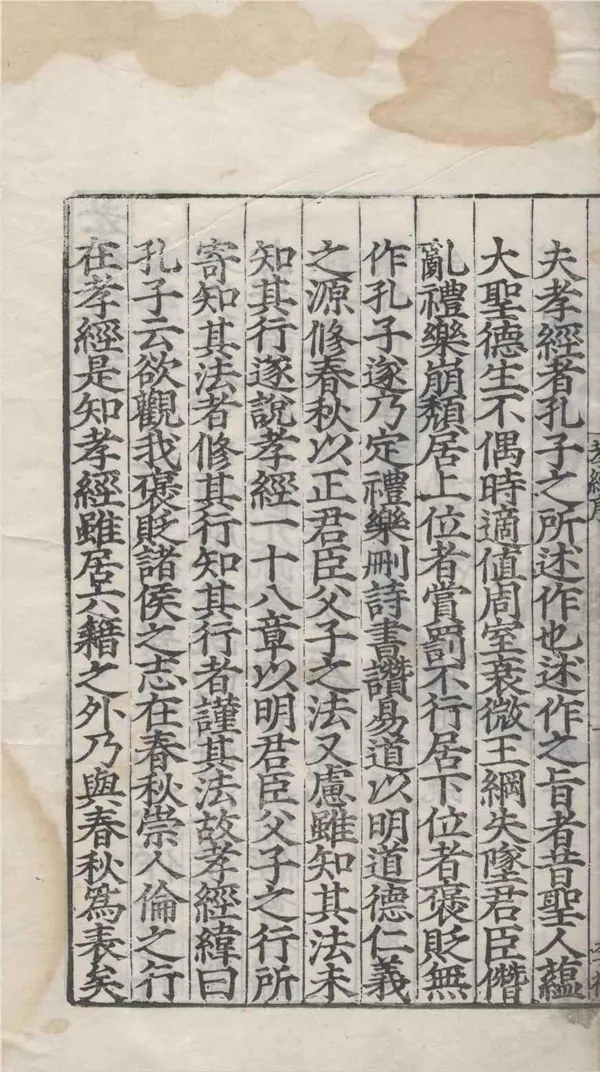 夫孝經者孔子之所述作也述作之旨者昔聖人蘊
大聖德生不偶時適値周室衰微王綱失墜君臣僭
亂禮樂崩頽居上位者賞罰不行居下位者褒貶無
作孔子遂乃定禮樂刪詩書讚易道以明道德仁義
之源修春秋以正君臣父子之法又慮雖知其法未
知其行遂說孝經一十八章以明君臣父子之行所
寄知其法者修其行知其行者謹其法故孝經緯曰
孔子云欲觀我褒貶諸侯之志在春秋崇人倫之行
在孝經是知孝經雖居六籍之外乃與春秋爲表矣